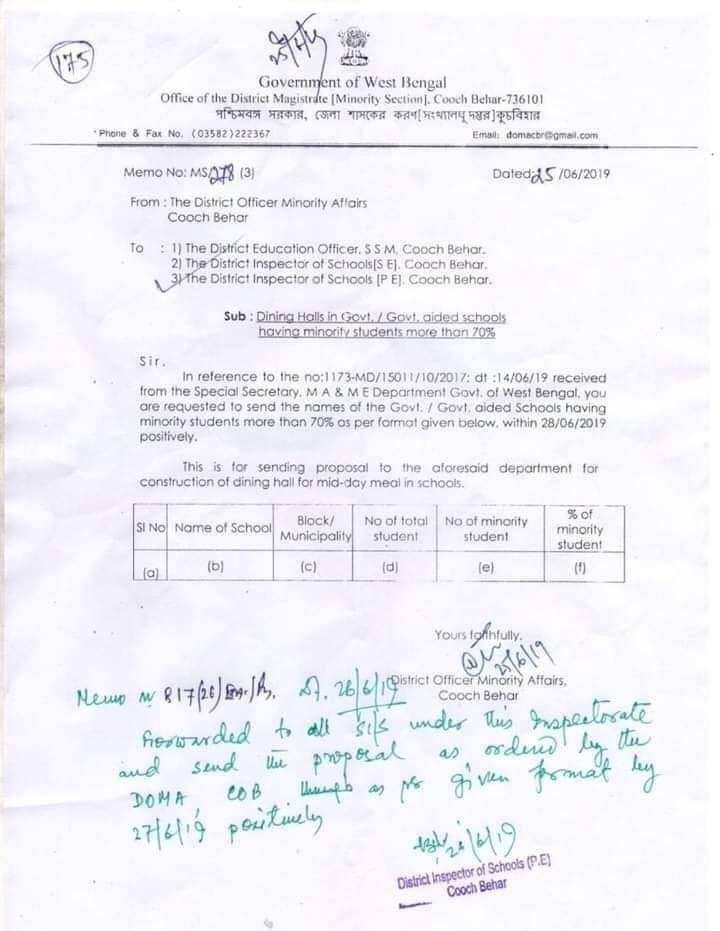 175
25/6/19
Government of West Bengal
Office of the District Magistrate [Minority Section], Cooch Behar-736101
পশ্চিমবঙ্গ সরকার, জেলা শাসকের করণ[সংখ্যালঘু দপ্তর]কুচবিহার
Phone & Fax No. (03582)222367 Email: domacbr@gmail.com
Memo No: MS/278 (3) Dated:25/06/2019
From : The District Officer Minority Affairs
Cooch Behar
To : 1) The District Education Officer, S S M, Cooch Behar.
2) The District Inspector of Schools[S E], Cooch Behar.
3) The District Inspector of Schools [P E], Cooch Behar.
Sub : Dining Halls in Govt. / Govt. aided schools
having minority students more than 70%
Sir,
In reference to the no:1173-MD/15011/10/2017; dt :14/06/19 received
from the Special Secretary, M A & M E Department Govt. of West Bengal, you
are requested to send the names of the Govt. / Govt. aided Schools having
minority students more than 70% as per format given below, within 28/06/2019
positively.
This is for sending proposal to the aforesaid department for
construction of dining hall for mid-day meal in schools.
Sl No Name of School Block/ Municipality No of total student No of minority student % of minority student
(a) (b) (c) (d) (e) (f)
Yours faithfully,
25/6/19
District Officer Minority Affairs,
Cooch Behar
Memo No 817(26) 26/6/19
Forwarded to all SI/S under this Inspectorate
and send the proposal as ordered by the
DOMA, COB as per given format by
27/6/19 positively
26/6/19
District Inspector of Schools (P.E)
Cooch Behar